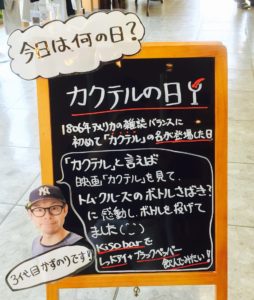 今日は何の日?
カクテルの日
1806年アメリカの雑誌バランスに
初めて「カクテル」の名が登場した日
「カクテル」と言えば
映画「カクテル」を見て、
トム・クルーズのボトルさばき?
に感動し、ボトルを投げて
ました(^_^)
Kiso barで
レッドアイ+ブラックペッパー
飲んどいたい!
3代目かずのりです!